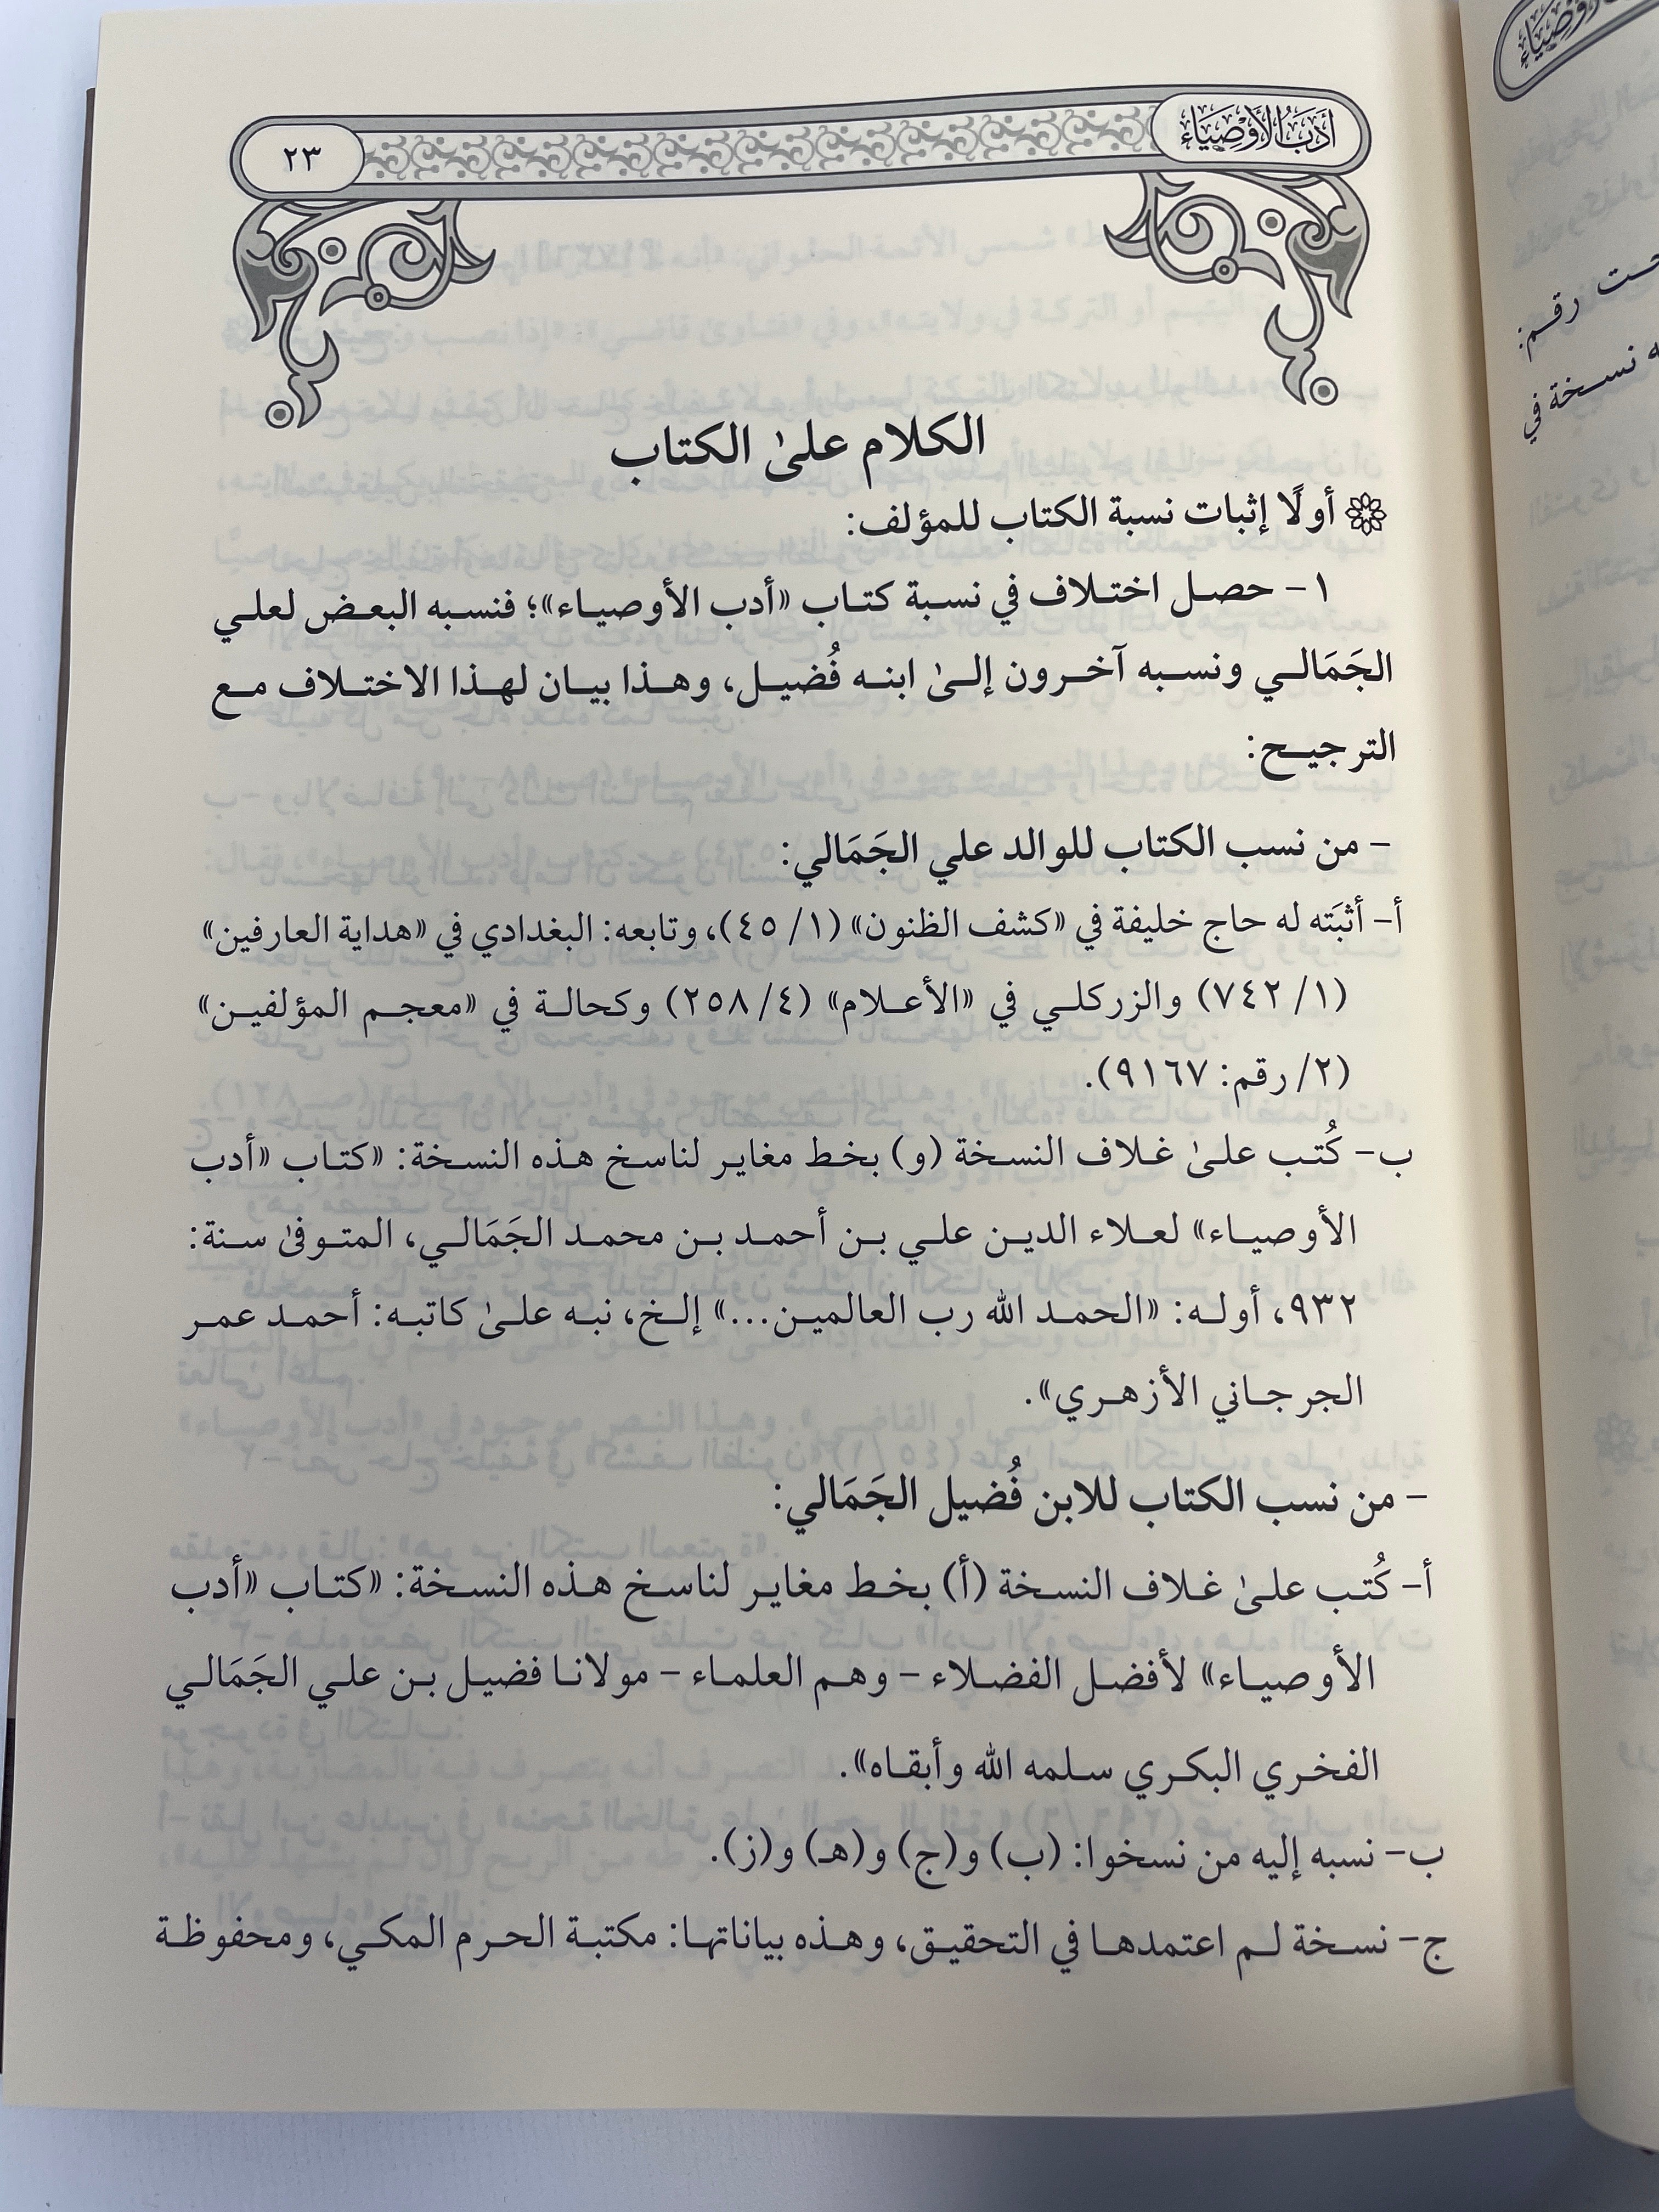 أَدَبُ الأَوْصِيَاءِ
٢٣
الكلام علىٰ الكتاب
أولًا إثبات نسبة الكتاب للمؤلف:
١- حصل اختلاف في نسبة كتاب «أدب الأوصياء»؛ فنسبه البعض لعلي
الجَمَالي ونسبه آخرون إلىٰ ابنه فُضيل، وهذا بيان لهذا الاختلاف مع
الترجيح:
- من نسب الكتاب للوالد علي الجَمَالي:
أ- أثبَته له حاج خليفة في «كشف الظنون» (١/ ٤٥)، وتابعه: البغدادي في «هداية العارفين»
(١/ ٧٤٢) والزركلي في «الأعلام» (٤/ ٢٥٨) وكحالة في «معجم المؤلفين»
(٢/ رقم: ٩١٦٧).
ب- كُتب علىٰ غلاف النسخة (و) بخط مغاير لناسخ هذه النسخة: «كتاب «أدب
الأوصياء» لعلاء الدين علي بن أحمد بن محمد الجَمَالي، المتوفىٰ سنة:
٩٣٢، أوله: «الحمد الله رب العالمين...» إلخ، نبه علىٰ كاتبه: أحمد عمر
الجرجاني الأزهري».
- من نسب الكتاب للابن فُضيل الجَمَالي:
أ- كُتب علىٰ غلاف النسخة (أ) بخط مغاير لناسخ هذه النسخة: «كتاب «أدب
الأوصياء» لأفضل الفضلاء - وهم العلماء - مولانا فضيل بن علي الجَمَالي
الفخري البكري سلمه الله وأبقاه».
ب- نسبه إليه من نسخوا: (ب) و(ج) و(هـ) و(ز).
ج- نسخة لم اعتمدها في التحقيق، وهذه بياناتها: مكتبة الحرم المكي، ومحفوظة
رقم:
نسخة في